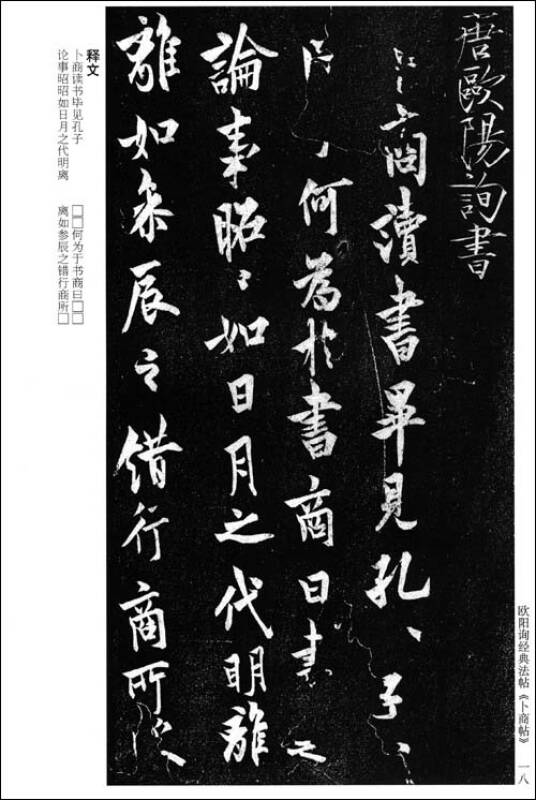 唐歐陽詢書
商讀書畢見孔子
何為於書商曰書之
論事昭昭如日月之代明離
離如參辰之錯行商所
释文
卜商读书毕见孔子
□□何为于书商曰□□
论事昭昭如日月之代明离
离如参辰之错行商所□
欧阳询经典法帖《卜商帖》
一八